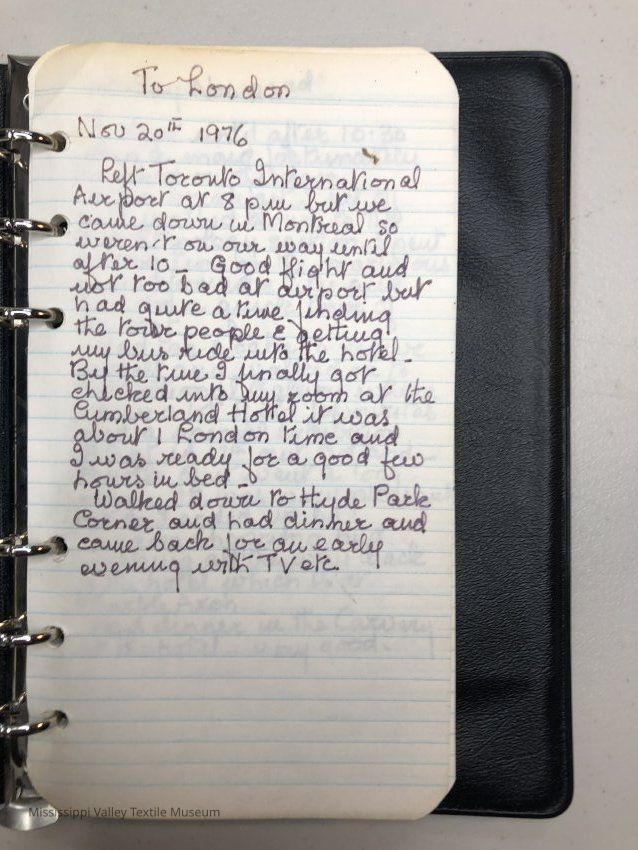 To London
Nov 20th 1976
Left Toronto International
Airport at 8 pm but we
came down in Montreal so
weren't on our way until
after 10 - Good flight and
not too bad at airport but
had quite a time finding
the tour people & getting
my bus ride into the hotel -
By the time I finally got
checked into my room at the
Cumberland Hotel it was
about 1 London time and
I was ready for a good few
hours in bed -
Walked down to Hyde Park
Corner and had dinner and
came back for an early
evening with TV etc.
Mississippi Valley Textile Museum